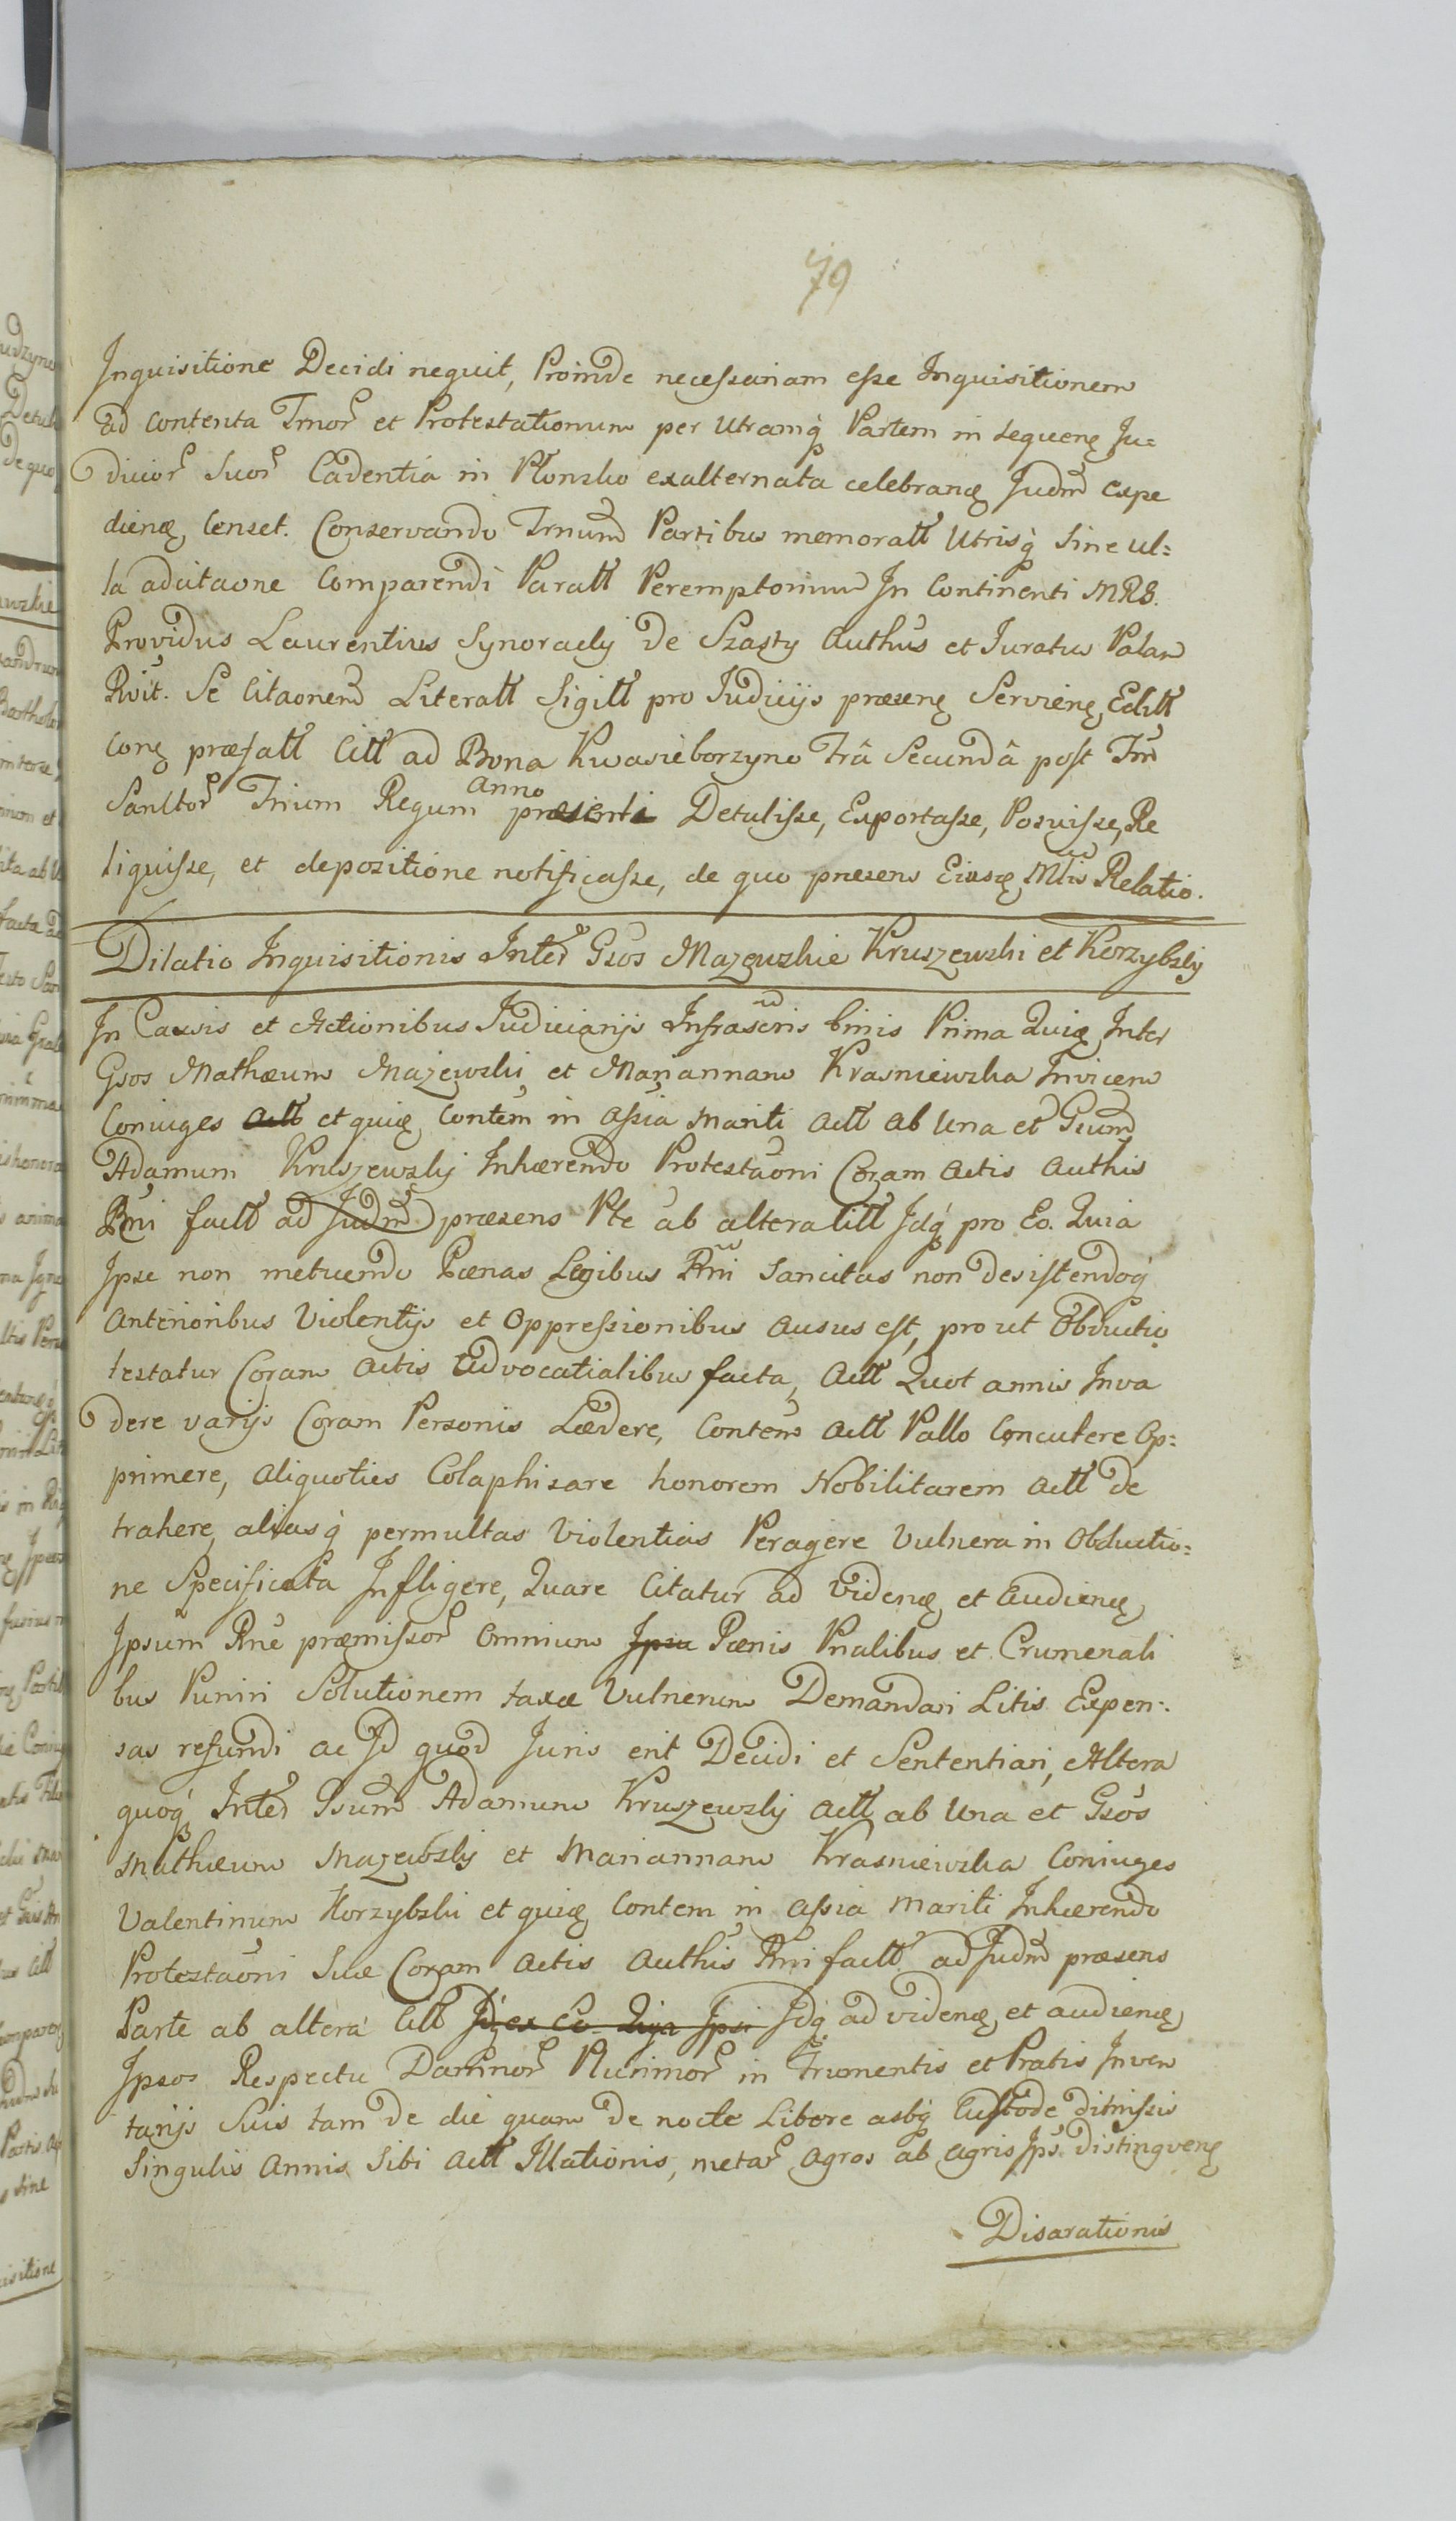 79
Inquisitione Decidi nequit, Proinde necessariam esse Inquisitionem
ad contenta Trnor et Protestationum per Utramq Partem in sequenę Ju=
dicior Suor Cadentia in Płonsko exalternata celebranę Judm expe
dienę Censet. Conservando Trnum Partibus memoratt Utrisq Sine ul=
la adcitaone Comparendi Paratt Peremptorium In Continenti MRS.
Providus Laurentius Synoracky De Szasty Authus et Juratus Palam
Rvit. Se Citaonem Literatt Sigitt pro Judicijs præsenę Servienę, Editt
conę præfatt Citt ad Bona Kwasieborzyno Frâ Secundâ post Fm
Sanctor Trium Regum anno præsenti Detulisse, Exportasse, Posuisse, Re
liquisse, et depositione notificasse, de quo præsens Eiusdę Mlis Relatio.
Dilatio Inquisitionis Inter Gsos Mazewskie Kruszewski et Korzybsky
In Causis et Actionibus Judiciarijs Infrascris binis Prima Quię Inter
Gsos Mathæum Mazewski et Mariannam Krasniewska Invicem
Coniuges Actt et quię Contem in assia Mariti Actt ab Una et Gsum
Adamum Kruszewsky Inhærendo Protestaoni Coram Actis Authis
Rvi factt ad Judm præsens Pte ab altera Citt Idq pro Eo. Quia
Ipse non metuendo Pœnas Legibus Rni Sancitas non desistendoq
Anterioribus Violentijs et Oppressionibus ausus est, prout Obductio
testatur Coram Actis Advocatialibus facta, Actt Quot annis Inva
dere varijs Coram Personis Lædere, Contem Actt Pallo Concutere Op=
primere, aliquoties Colaphisare honorem Nobilitarem Actt De
trahere, aliasq permultas Violentias Peragere Vulnera in Obductio=
ne Specificata Infligere, Quare Citatur ad Videnę et Audienę
Ipsum Rne præmissor Omnium Ipsu Pœnis Pnalibus et Crumenali
bus Puniri Solutionem taxæ Vulnerum Demandari Litis Expen=
sas refundi ac Id quod Juris erit Decidi et Sententiari, Altera
quoq Inter Gsum Adamum Kruszewsky Actt ab Una et Gsos
Mathæum Mazewsky et Mariannam Krasniewska Coniuges
Valentinum Korzybski et quię Contem in assia Mariti Inhærendo
Protestaoni Suæ Coram Actis Authis Rni factt ad Judm præsens
Parte ab altera Citt Idq ex Eo Quia Ipsi Idq ad videnę et audienę
Ipsos Respectu Damnor Plurimor in Frumentis et Pratis Inven
tarijs Suis tam De die quam De nocte Libere absq Custode dimissis
Singulis Annis Sibi Actt Illationis, metar Agros ab agris Ips. Distingvenę
Disarationis